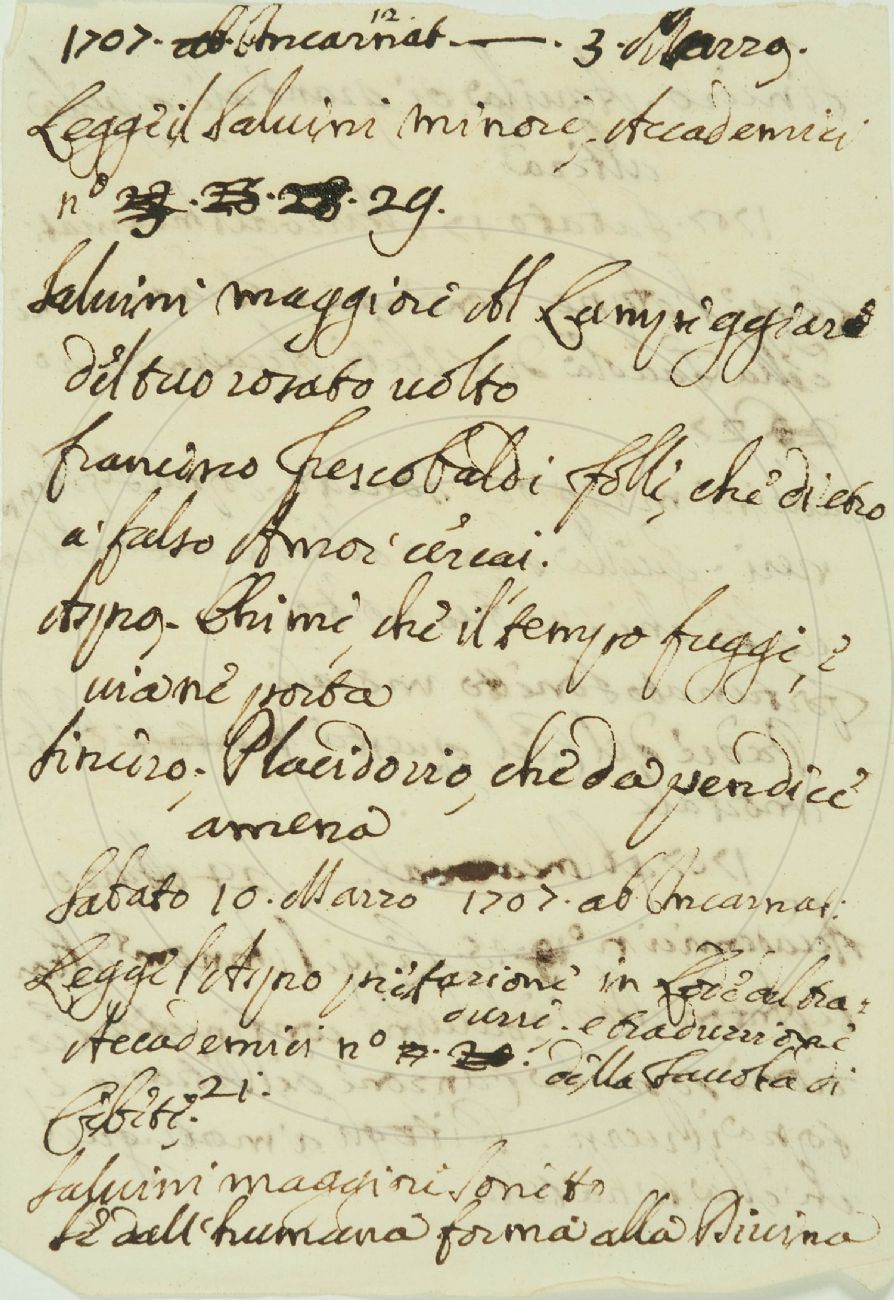 1707. ab Incarnat. 12 3. Marzo.
Legge il Salvini minore, Accademici
n° 29.
Salvini maggiore Al Lampeggiare
del tuo rosato uolto
francesco Frescobaldi folle, che dietro
a falso Amor cercai.
Aπρο. Ohime, che il tempo fugge, e
uia ne porta
Sincero, Placidorio, che da pendice
amena
Sabato 10. Marzo 1707. ab Incarnat.
Legge l'
in Lode del tra-
durre. e traduzzione
Accademici n° 21.
della Fauola di
Cebete.
Salvini maggiore Sonetto
Se dall'humana forma alla Diuina